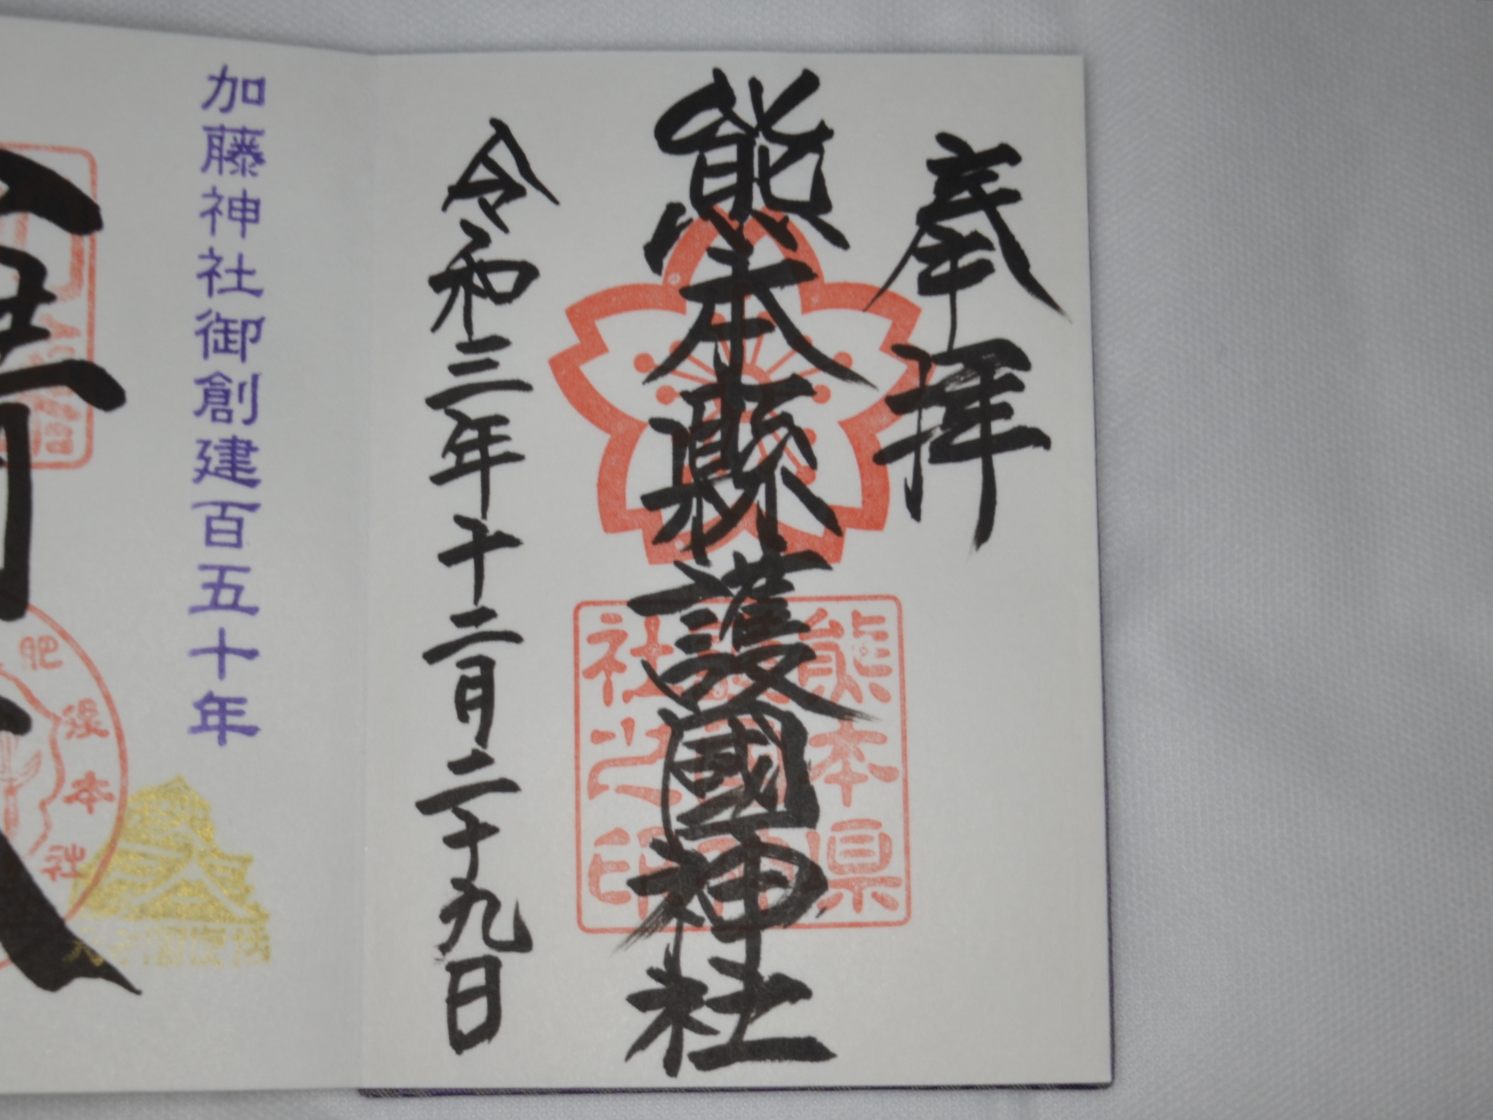 奉拝
熊本縣護國神社
熊本県
社之印
令和三年十二月二十九日
加藤神社御創建百五十年
肥後本社